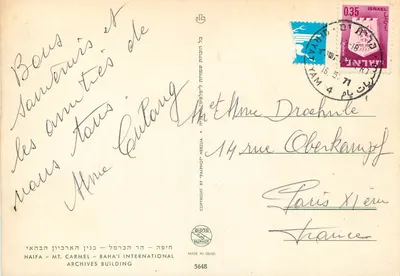 Bons
souvenirs et
les amitiés de
nous tous.
Mme
M et Mme
14 rue Oberkampf
Paris XIème
France
ISRAEL
0.35
ישראל
BAT YAM 4
71
COPYRIGHT BY "PALPHOT" HERZLIA
PALPHOT
MADE IN ISRAEL
חיפה - הר הכרמל - בנין הארכיון הבהאי
HAIFA - MT. CARMEL - BAHA'I INTERNATIONAL
ARCHIVES BUILDING
5648